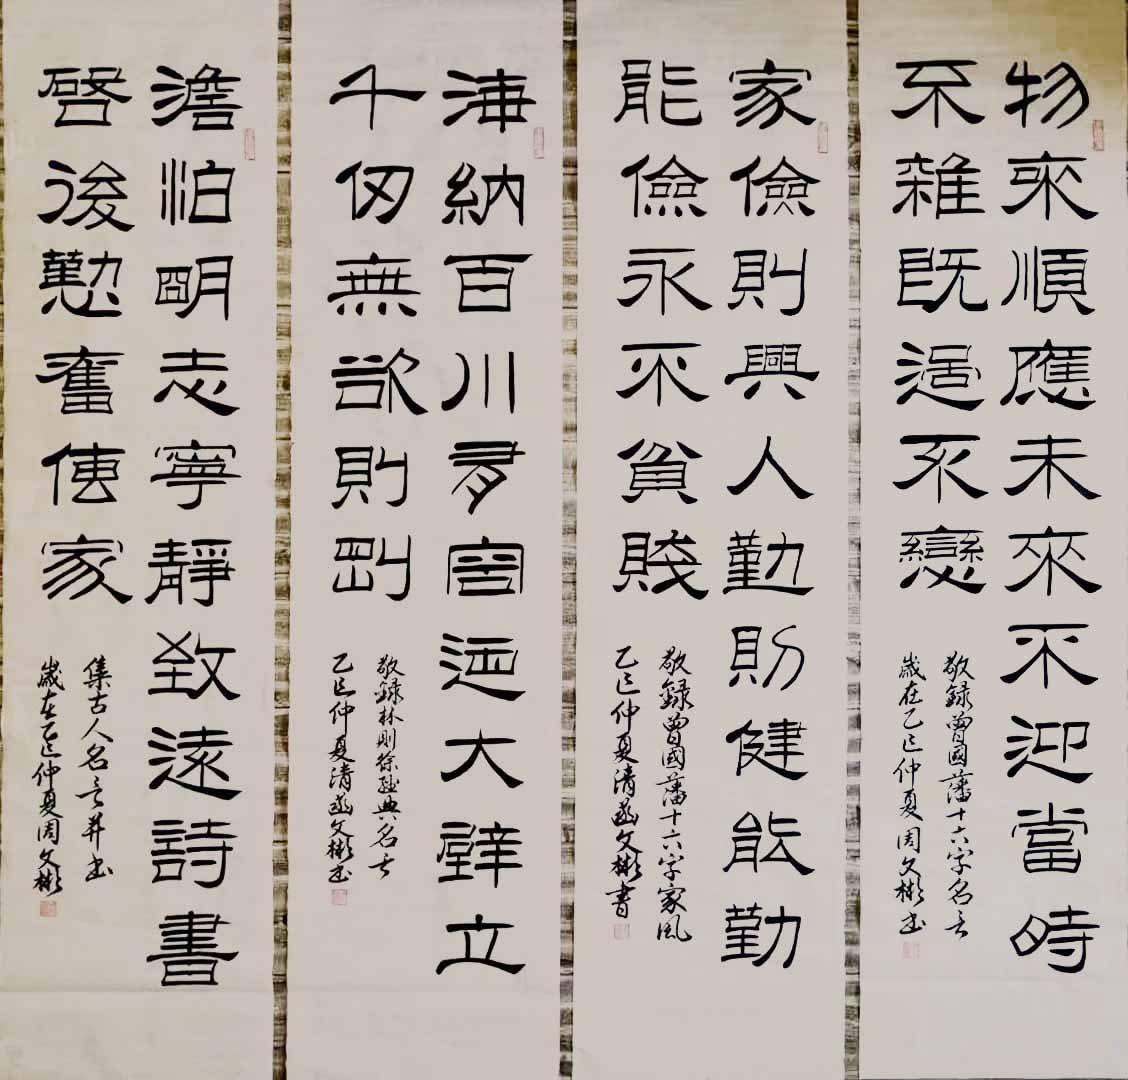 物來順應未來不迎當時
不雜既過不戀
敬録曾國藩十六字名言
歲在乙巳仲夏周文彬书
家儉則興人勤則健能勤
能儉永不貧賤
敬録曾國藩十六字家風
乙巳仲夏清菡文彬書
海納百川有容迺大壁立
千仞無欲則剛
敬録林則徐經典名言
乙巳仲夏清菡文彬书
澹泊明志寧靜致遠詩書
啓後懃奮傳家
集古人名言并书
歲在乙巳仲夏周文彬